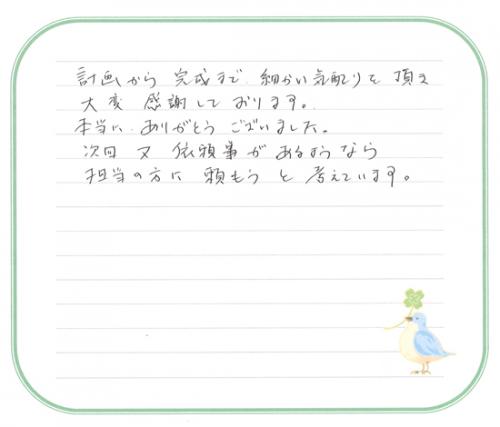 計画から完成まで、細かい気配りを頂き
大変感謝しております。
本当に、ありがとうございました。
次回又依頼事があるようなら
担当の方に頼もうと考えています。